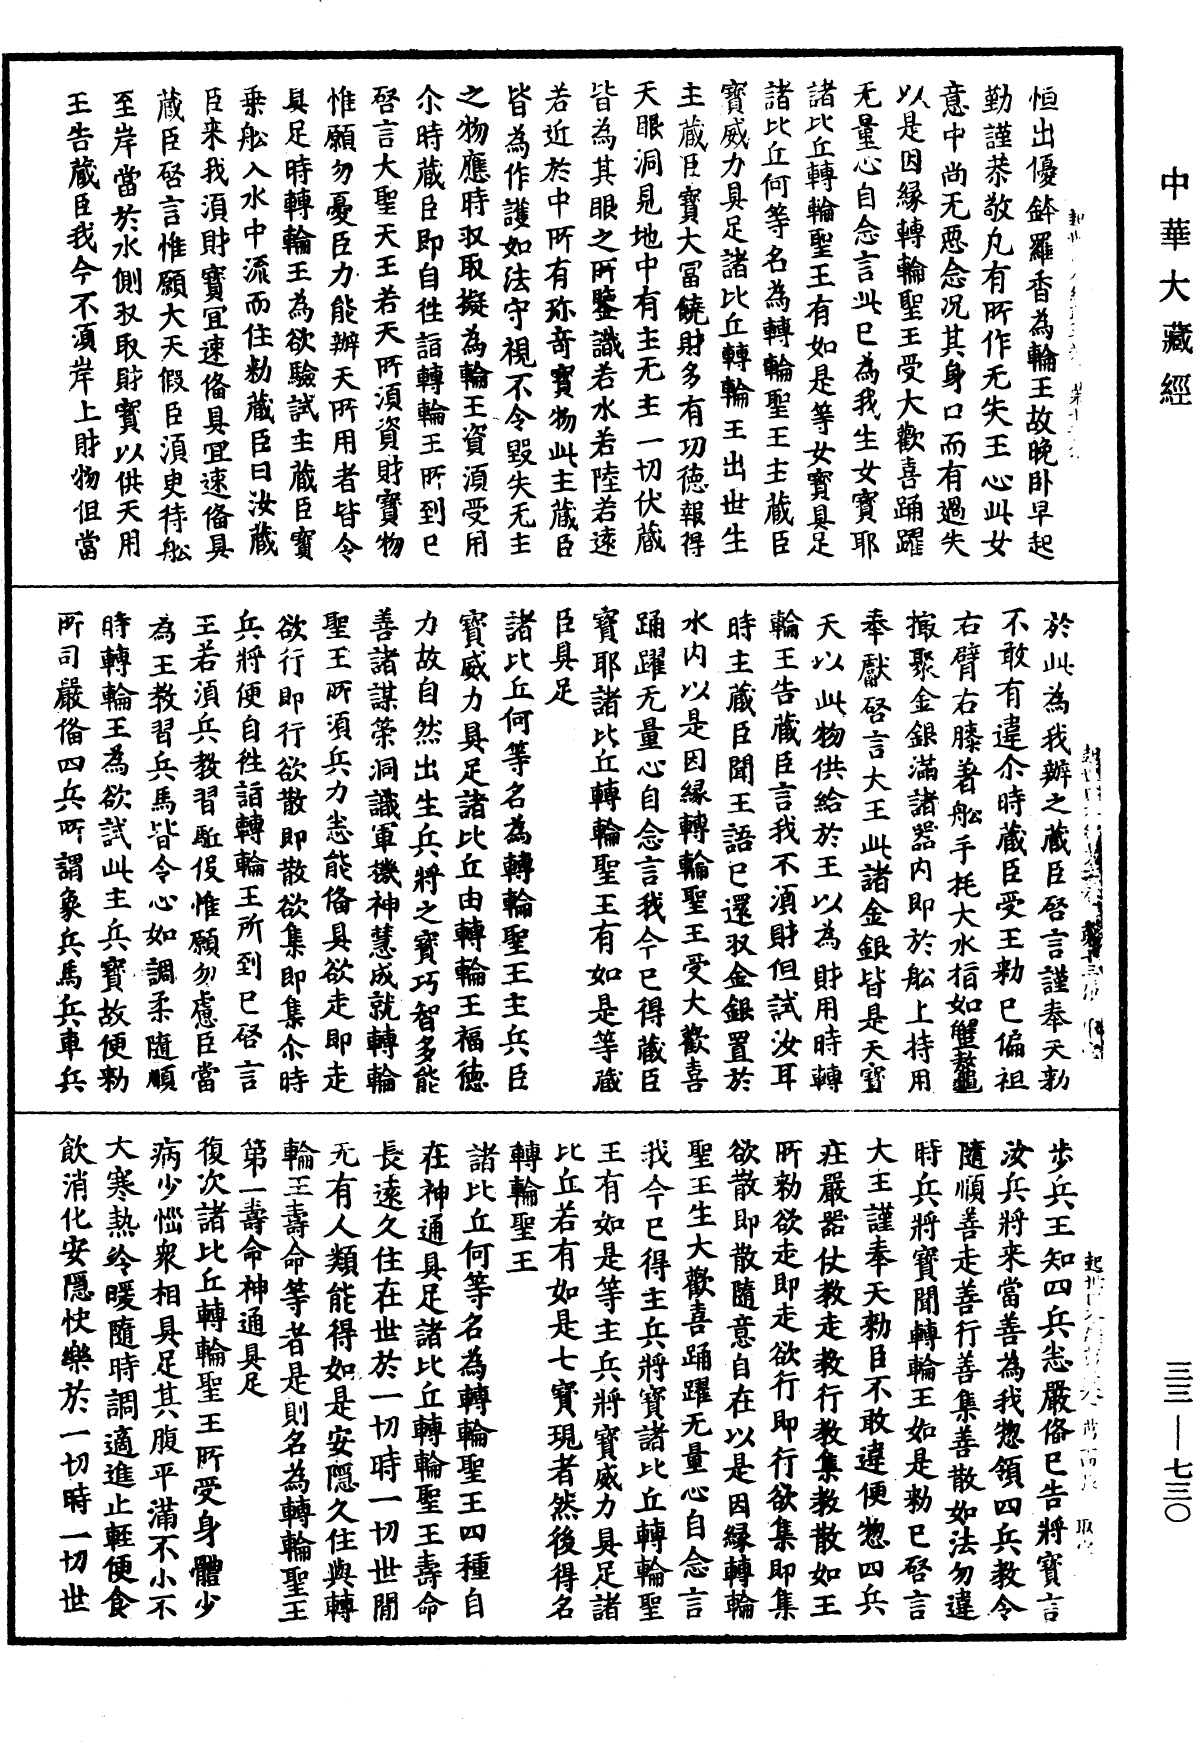 中華大藏經
恒出優鉢羅香為輪王故晚卧早起
勤謹恭敬凡有所作无失王心此女
意中尚无惡念况其身口而有過失
以是因緣轉輪聖王受大歡喜踊躍
无量心自念言此已為我生女寶耶
諸比丘轉輪聖王有如是等女寶具足
諸比丘何等名為轉輪聖王主藏臣
寶威力具足諸比丘轉輪王出世生
主藏臣寶大冨饒財多有功德報得
天眼洞見地中有主无主一切伏藏
皆為其眼之所鑒識若水若陸若遠
若近於中所有珎竒寶物此主藏臣
皆為作護如法守視不令毀失无主
之物應時収取擬為輪王資須受用
尒時藏臣即自往詣轉輪王所到已
啓言大聖天王若天所須資財寶物
惟願勿憂臣力能辦天所用者皆令
具足時轉輪王為欲驗試主藏臣寶
乘舩入水中流而住勑藏臣曰汝藏
臣来我須財寶冝速俻具冝速俻具
藏臣啓言惟願大天假臣須臾待舩
至岸當於水側収取財寶以供天用
王告藏臣我今不須岸上財物但當
於此為我辦之藏臣啓言謹奉天勑
不敢有違尒時藏臣受王勑已偏袒
右臂右膝著舩手撓大水指如蟹螯龜
撮聚金銀滿諸器内即於舩上持用
奉獻啓言大王此諸金銀皆是天寶
天以此物供給於王以為財用時轉
輪王告藏臣言我不須財但試汝耳
時主藏臣聞王語已還収金銀置於
水内以是因緣轉輪聖王受大歡喜
踊躍无量心自念言我今已得藏臣
寶耶諸比丘轉輪聖王有如是等藏
臣具足
諸比丘何等名為轉輪聖王主兵臣
寶威力具足諸比丘由轉輪王福德
力故自然出生兵將之寶巧智多能
善諸謀策洞識軍機神慧成就轉輪
聖王所須兵力悉能俻具欲走即走
欲行即行欲散即散欲集即集尒時
兵將便自往詣轉輪王所到已啓言
王若須兵教習駈役惟願勿慮臣當
為王教習兵馬皆令心如調柔隨順
時轉輪王為欲試此主兵寶故便勑
所司嚴俻四兵所謂象兵馬兵車兵
步兵王知四兵悉嚴俻已告將寶言
汝兵將来當善為我惣領四兵教令
隨順善走善行善集善散如法勿違
時兵將寶聞轉輪王如是勑已啓言
大王謹奉天勑臣不敢違便惣四兵
庄嚴器仗教走教行教集教散如王
所勑欲走即走欲行即行欲集即集
欲散即散隨意自在以是因緣轉輪
聖王生大歡喜踊躍无量心自念言
我今已得主兵將寶諸比丘轉輪聖
王有如是等主兵將寶威力具足諸
比丘若有如是七寶現者然後得名
轉輪聖王
諸比丘何等名為轉輪聖王四種自
在神通具足諸比丘轉輪聖王壽命
長遠久住在世於一切時一切世閒
无有人類能得如是安隱久住與轉
輪王壽命等者是則名為轉輪聖王
第一壽命神通具足
復次諸比丘轉輪聖王所受身體少
病少惱衆相具足其腹平滿不小不
大寒熱冷暖隨時調適進止輕便食
飲消化安隱快樂於一切時一切世
三三—七三〇